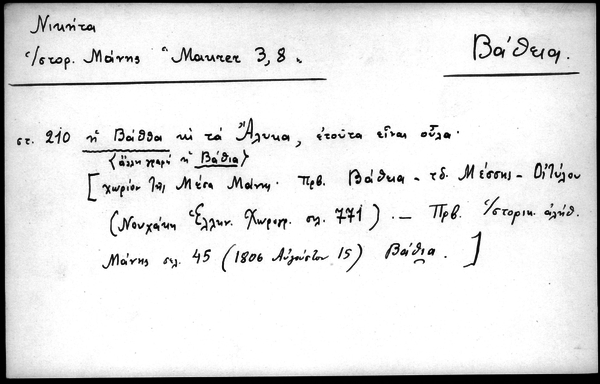 Νικήτα
Ἱστορ. Μάνης Maurer 3,8.
Βάθεια.
στ. 210 ἡ Βάθθα κὶ τὰ Ἄλυκα, ἐτοῦτα εἶναι οὗλα.
(ἄλλη γραφὴ ἡ Βάθια)
[χωρίον τῆς Μέσα Μάνης. Πρβ. Βάθεια - τδ. Μέσσης - Οἰτύλου
(Νουχάκη Ἑλλην. Χωρογρ. σελ. 771). — Πρβ. Ἱστορικ. ἀλήθ.
Μάνης σελ. 45 (1806 Αὐγούστου 15) Βάθια.]